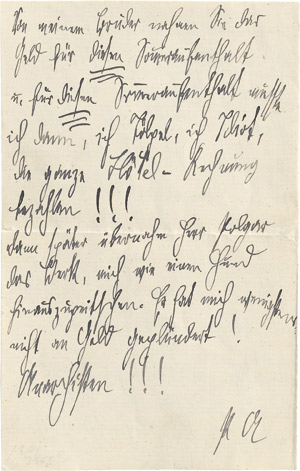 Von meinem Bruder nahmen Sie das
Geld für diesen Sommeraufenthalt
u. für diesen Sommeraufenthalt mußte
ich dann, ich Tölpel, ich Idiot,
die ganze Hôtel-Rechnung
bezahlen !!!
Dann später übernahm Herr Polgar
das Werk, mich wie einen Hund
hinauszupeitschen. Er hat mich wenigstens
nicht an Geld geplündert !
Anarchisten !!!
PA